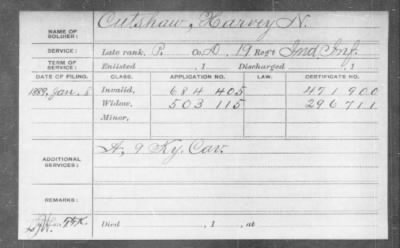 NAME OF SOLDIER: Cutshaw, Harvey N.
SERVICE: Late rank, P. Co. D, 19 Reg't Ind. Inf.
TERM OF SERVICE: Enlisted , 1 Discharged , 1
DATE OF FILING. CLASS. APPLICATION NO. LAW. CERTIFICATE NO.
1889, Jan. 8 Invalid, 684 405 471 900
Widow, 503 115 296 711
Minor,
ADDITIONAL SERVICES: A, 9 Ky. Cav.
REMARKS:
Died , 1 , at